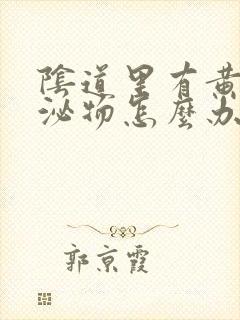 陰道里有黄
泌物怎麼办
郭京霞